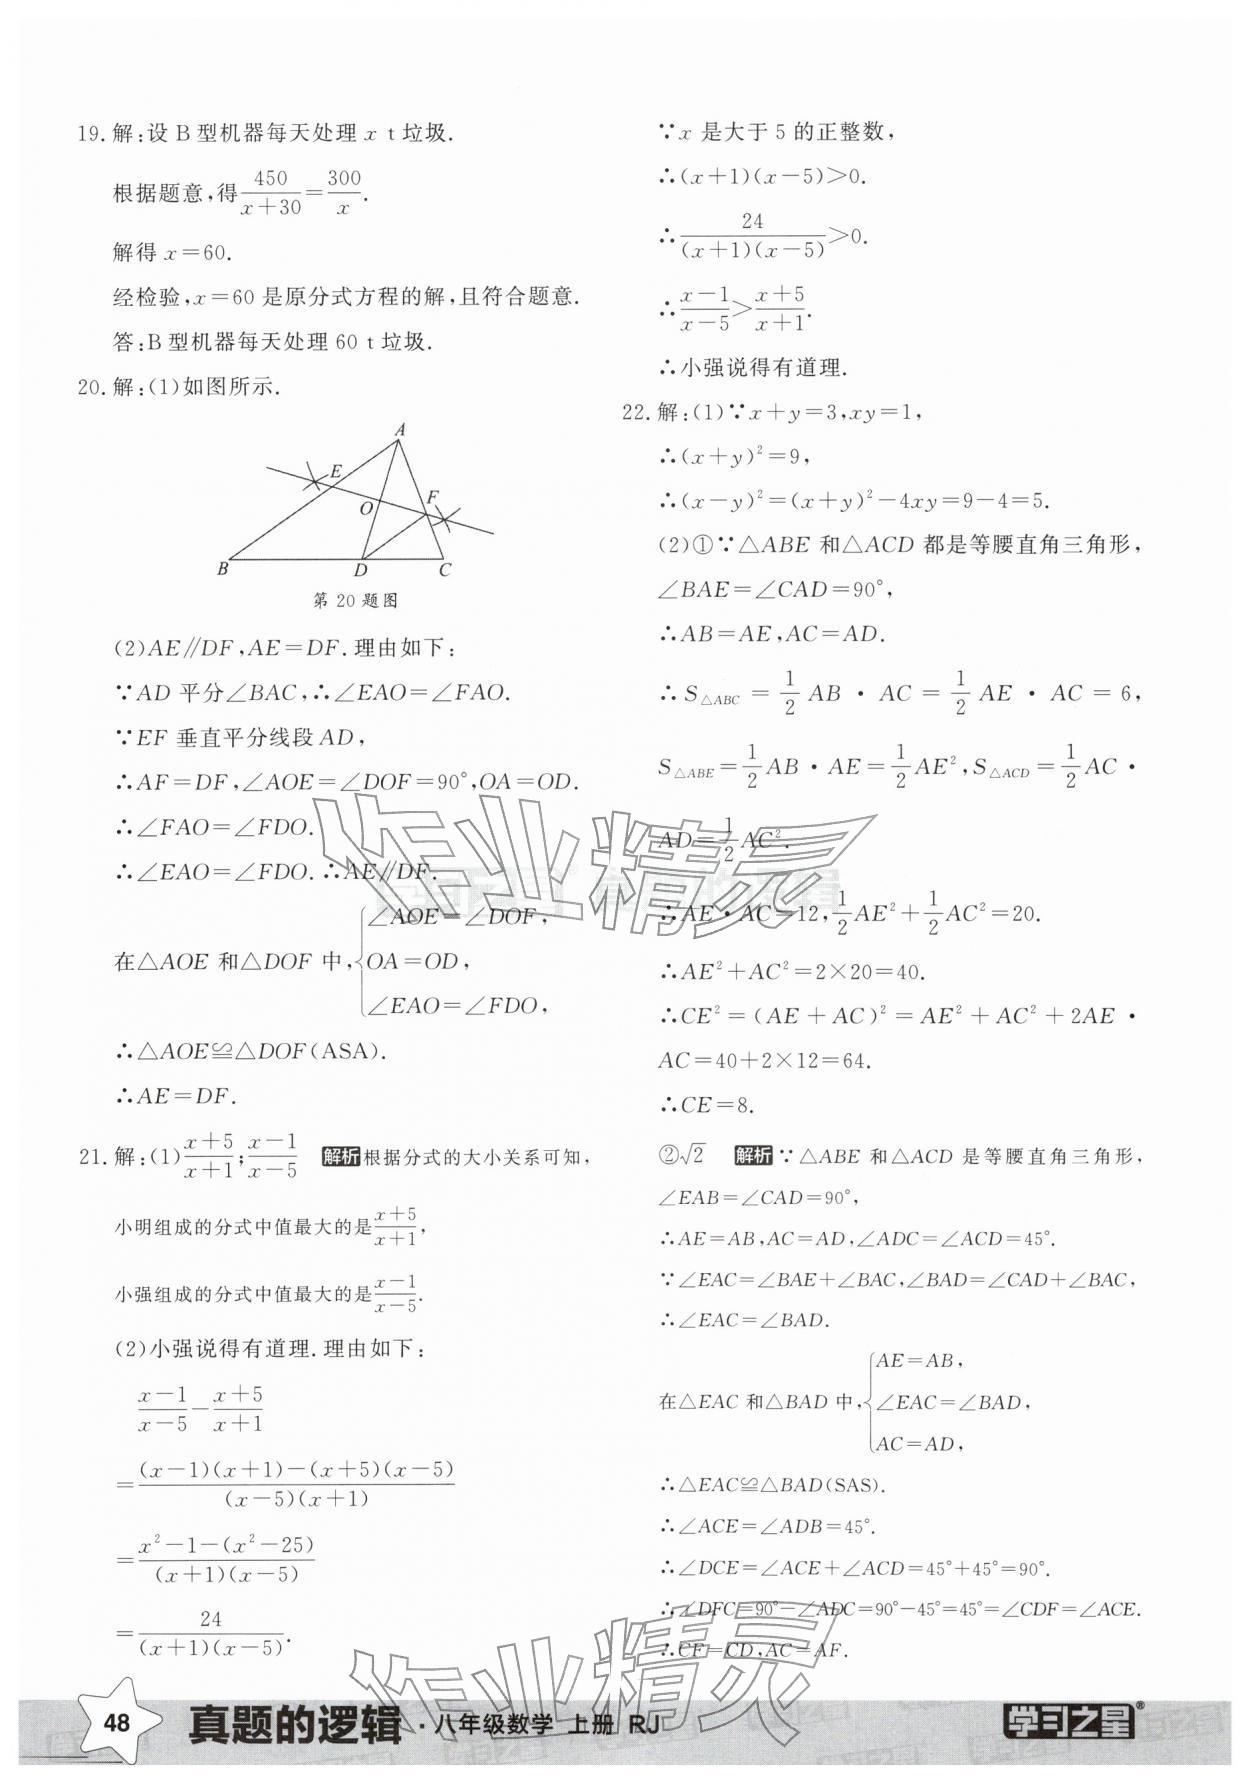 19. 解:设 B 型机器每天处理 x t 垃圾.
根据题意,得450/(x+30)=300/x.
解得 x=60.
经检验,x=60 是原分式方程的解,且符合题意.
答:B 型机器每天处理 60 t 垃圾.
20. 解:(1)如图所示.
A
E
F
O
B D C
第 20 题图
(2)AE∥DF,AE=DF.理由如下:
∵AD 平分∠BAC,∴∠EAO=∠FAO.
∵EF 垂直平分线段 AD,
∴AF=DF,∠AOE=∠DOF=90°,OA=OD.
∴∠FAO=∠FDO.
∴∠EAO=∠FDO.∴AE∥DF.
在△AOE 和△DOF 中,{∠AOE=∠DOF,
OA=OD,
∠EAO=∠FDO,
∴△AOE≌△DOF(ASA).
∴AE=DF.
21. 解:(1)(x+5)/(x+1);(x-1)/(x-5) 解析 根据分式的大小关系可知,
小明组成的分式中值最大的是(x+5)/(x+1),
小强组成的分式中值最大的是(x-1)/(x-5).
(2)小强说得有道理.理由如下:
(x-1)/(x-5)-(x+5)/(x+1)
=[(x-1)(x+1)-(x+5)(x-5)]/[(x-5)(x+1)]
=[x²-1-(x²-25)]/[(x+1)(x-5)]
=24/[(x+1)(x-5)].
∵x 是大于 5 的正整数,
∴(x+1)(x-5)>0.
∴24/[(x+1)(x-5)]>0.
∴(x-1)/(x-5)>(x+5)/(x+1).
∴小强说得有道理.
22. 解:(1)∵x+y=3,xy=1,
∴(x+y)²=9,
∴(x-y)²=(x+y)²-4xy=9-4=5.
(2)①∵△ABE 和△ACD 都是等腰直角三角形,
∠BAE=∠CAD=90°,
∴AB=AE,AC=AD.
∴S△ABC=1/2 AB·AC=1/2 AE·AC=6,
S△ABE=1/2 AB·AE=1/2 AE²,S△ACD=1/2 AC·
AD=1/2 AC².
∴AE·AC=12,1/2 AE²+1/2 AC²=20.
∴AE²+AC²=2×20=40.
∴CE²=(AE+AC)²=AE²+AC²+2AE·
AC=40+2×12=64.
∴CE=8.
②√2 解析 ∵△ABE 和△ACD 是等腰直角三角形,
∠EAB=∠CAD=90°,
∴AE=AB,AC=AD,∠ADC=∠ACD=45°.
∵∠EAC=∠BAE+∠BAC,∠BAD=∠CAD+∠BAC,
∴∠EAC=∠BAD.
在△EAC 和△BAD 中,{AE=AB,
∠EAC=∠BAD,
AC=AD,
∴△EAC≌△BAD(SAS).
∴∠ACE=∠ADB=45°.
∴∠DCE=∠ACE+∠ACD=45°+45°=90°.
∴∠DFC=90°-∠ADC=90°-45°=45°=∠CDF=∠ACE.
∴CF=CD,AC=AF.
作业精灵
作业精灵
48 真题的逻辑·八年级数学 上册 RJ 学习之星®